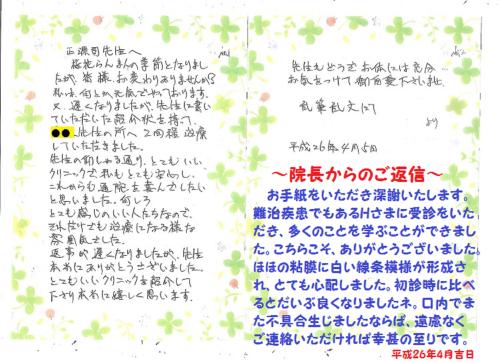 正源司先生へ
桜花らんまんの季節となりまし
たが、皆様お変わりありませんか?
私は、何とか元気でやっております。
又、遅くなりましたが、先生に書い
ていただいた紹介状を持って、
先生の所へ2回程治療
していただきました。
先生の前しゃる通り、とてもいい
クリニックで私もとても安心し、
これからも通院を重んでしたい
と思いました。何しろ
とても感じのいい人たちなので、
それだけでも治療になる様な
雰囲気でした。
返事が遅くなりましたが、先生
本当にありがとうございました。
とてもいいクリニックを紹介して
下さり本当に嬉しく思います。
先生もどうぞお体には充分
お気をつけて御自愛下さいませ。
乱筆乱文にて
より
平成26年4月5日
~院長からのご返信~
お手紙をいただき深謝いたします。
難治疾患でもあるHさまに受診をいた
だき、多くのことを学ぶことができまし
た。こちらこそ、ありがとうございました。
ほほの粘膜に白い線条模様が形成さ
れ、とても心配しました。初診時に比べ
るとだいぶ良くなりましたネ。口内でま
た不具合生じましたならば、遠慮なく
ご連絡いただければ幸甚の至りです。
平成26年4月吉日